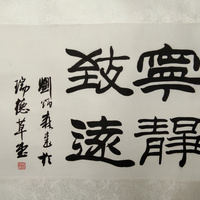 寧靜
致遠
劉炳森書於
瑞德草堂